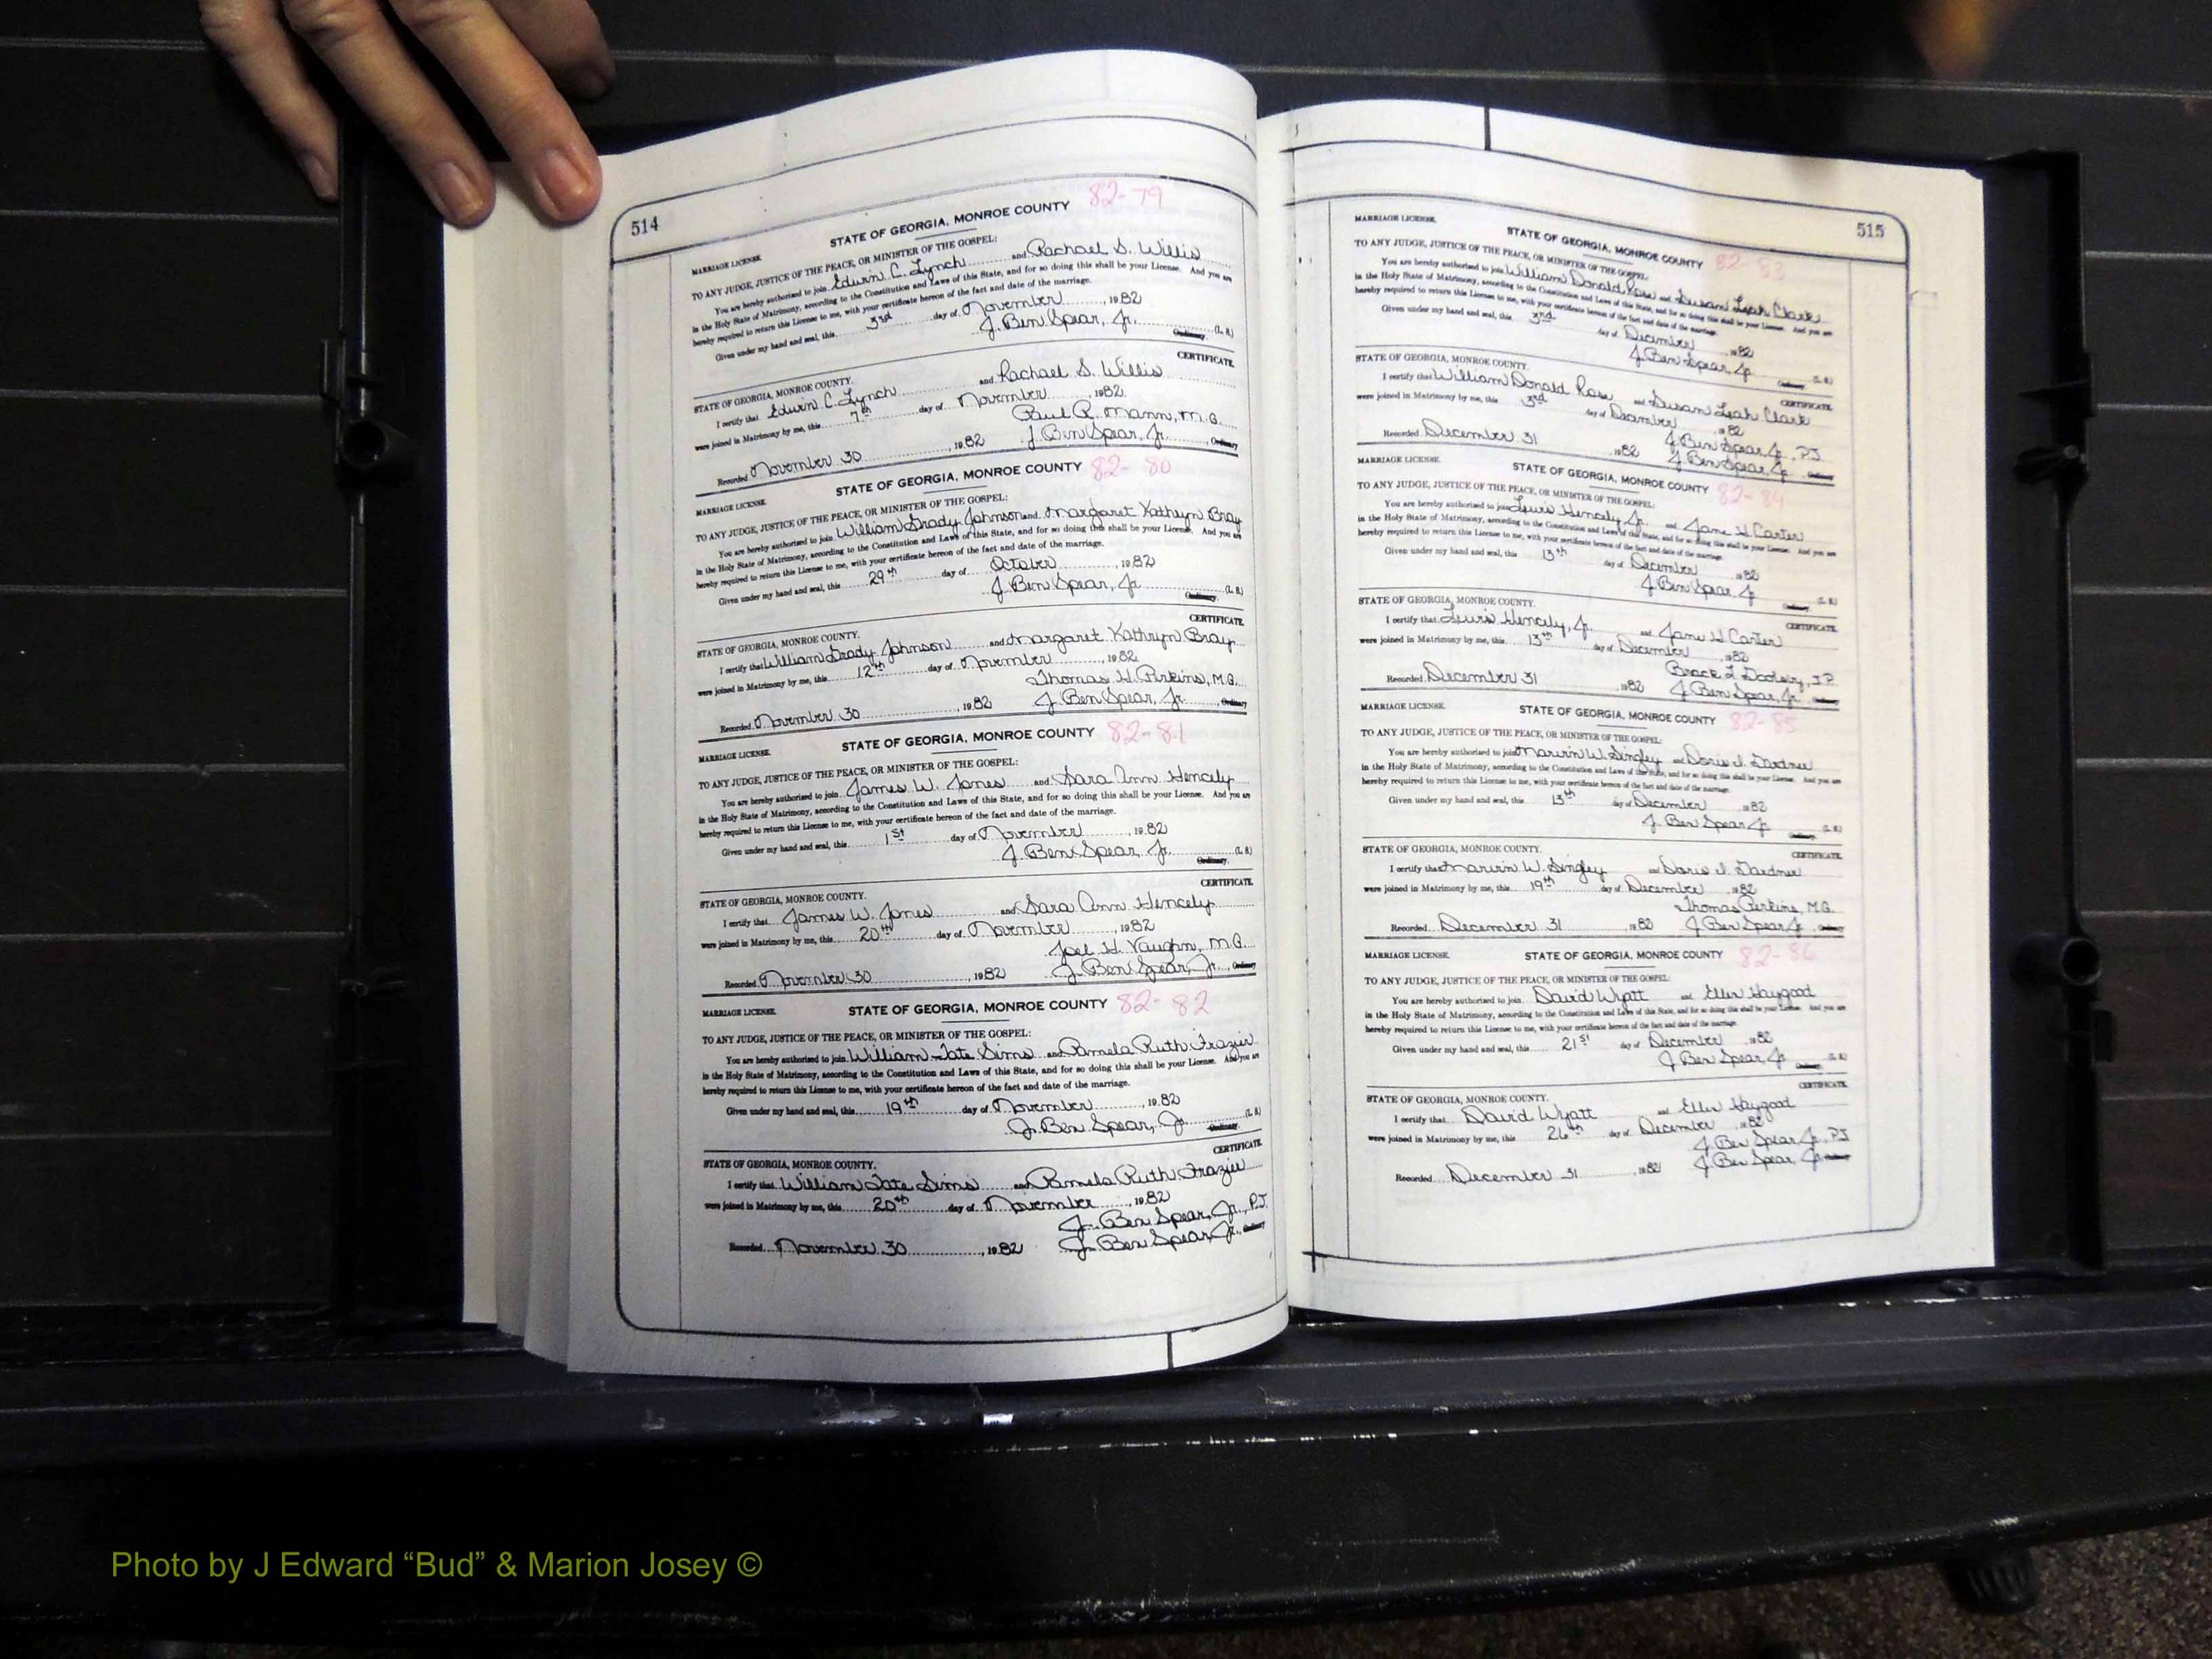 514
82-79
STATE OF GEORGIA, MONROE COUNTY
MARRIAGE LICENSE.
TO ANY JUDGE, JUSTICE OF THE PEACE, OR MINISTER OF THE GOSPEL:
You are hereby authorized to join Edwin C. Lynch and Rachael S. Willis
in the Holy State of Matrimony, according to the Constitution and Laws of this State, and for so doing this shall be your License. And you are
hereby required to return this License to me, with your certificate hereon of the fact and date of the marriage.
Given under my hand and seal, this 3rd day of November, 1982
J. Ben Spear, Jr. Ordinary. (L. S.)
CERTIFICATE.
STATE OF GEORGIA, MONROE COUNTY.
I certify that Edwin C. Lynch and Rachael S. Willis
were joined in Matrimony by me, this 7th day of November, 1982.
Paul R. Mann, M.G.
Recorded November 30, 1982 J. Ben Spear, Jr., Ordinary
STATE OF GEORGIA, MONROE COUNTY 82-80
MARRIAGE LICENSE.
TO ANY JUDGE, JUSTICE OF THE PEACE, OR MINISTER OF THE GOSPEL:
You are hereby authorized to join William Grady Johnson and Margaret Kathryn Bray
in the Holy State of Matrimony, according to the Constitution and Laws of this State, and for so doing this shall be your License. And you are
hereby required to return this License to me, with your certificate hereon of the fact and date of the marriage.
Given under my hand and seal, this 29th day of October, 1982
J. Ben Spear, Jr. Ordinary. (L. S.)
CERTIFICATE.
STATE OF GEORGIA, MONROE COUNTY.
I certify that William Grady Johnson and Margaret Kathryn Bray
were joined in Matrimony by me, this 12th day of November, 1982
Thomas H. Perkins, M.G.
Recorded November 30, 1982 J. Ben Spear, Jr., Ordinary
STATE OF GEORGIA, MONROE COUNTY 82-81
MARRIAGE LICENSE.
TO ANY JUDGE, JUSTICE OF THE PEACE, OR MINISTER OF THE GOSPEL:
You are hereby authorized to join James W. Jones and Sara Ann Hencely
in the Holy State of Matrimony, according to the Constitution and Laws of this State, and for so doing this shall be your License. And you are
hereby required to return this License to me, with your certificate hereon of the fact and date of the marriage.
Given under my hand and seal, this 1st day of November, 1982
J. Ben Spear, Jr. Ordinary. (L. S.)
CERTIFICATE.
STATE OF GEORGIA, MONROE COUNTY.
I certify that James W. Jones and Sara Ann Hencely
were joined in Matrimony by me, this 20th day of November, 1982
Joel H. Vaughn, M.G.
Recorded November 30, 1982 J. Ben Spear, Jr., Ordinary
STATE OF GEORGIA, MONROE COUNTY 82-82
MARRIAGE LICENSE.
TO ANY JUDGE, JUSTICE OF THE PEACE, OR MINISTER OF THE GOSPEL:
You are hereby authorized to join William Tate Sims and Pamela Ruth Frazier
in the Holy State of Matrimony, according to the Constitution and Laws of this State, and for so doing this shall be your License. And you are
hereby required to return this License to me, with your certificate hereon of the fact and date of the marriage.
Given under my hand and seal, this 19th day of November, 1982
J. Ben Spear, Jr. Ordinary. (L. S.)
CERTIFICATE.
STATE OF GEORGIA, MONROE COUNTY.
I certify that William Tate Sims and Pamela Ruth Frazier
were joined in Matrimony by me, this 20th day of November, 1982
J. Ben Spear, Jr., P.J.
Recorded November 30, 1982 J. Ben Spear, Jr., Ordinary
515
MARRIAGE LICENSE. STATE OF GEORGIA, MONROE COUNTY 82-83
TO ANY JUDGE, JUSTICE OF THE PEACE, OR MINISTER OF THE GOSPEL:
You are hereby authorized to join William Donald and Susan Leah Clark
in the Holy State of Matrimony, according to the Constitution and Laws of this State, and for so doing this shall be your License. And you are
hereby required to return this License to me, with your certificate hereon of the fact and date of the marriage.
Given under my hand and seal, this 3rd day of December, 1982
J. Ben Spear, Jr. Ordinary. (L. S.)
STATE OF GEORGIA, MONROE COUNTY. CERTIFICATE.
I certify that William Donald and Susan Leah Clark
were joined in Matrimony by me, this 3rd day of December, 1982
J. Ben Spear, Jr., P.J.
Recorded December 31, 1982 J. Ben Spear, Jr. Ordinary
MARRIAGE LICENSE. STATE OF GEORGIA, MONROE COUNTY 82-84
TO ANY JUDGE, JUSTICE OF THE PEACE, OR MINISTER OF THE GOSPEL:
You are hereby authorized to join Lewis Hencely, Jr. and Jane H Carter
in the Holy State of Matrimony, according to the Constitution and Laws of this State, and for so doing this shall be your License. And you are
hereby required to return this License to me, with your certificate hereon of the fact and date of the marriage.
Given under my hand and seal, this 13th day of December, 1982
J. Ben Spear, Jr. Ordinary. (L. S.)
STATE OF GEORGIA, MONROE COUNTY. CERTIFICATE.
I certify that Lewis Hencely, Jr. and Jane H Carter
were joined in Matrimony by me, this 13th day of December, 1982
J.P.
Recorded December 31, 1982 J. Ben Spear, Jr. Ordinary
MARRIAGE LICENSE. STATE OF GEORGIA, MONROE COUNTY 82-85
TO ANY JUDGE, JUSTICE OF THE PEACE, OR MINISTER OF THE GOSPEL:
You are hereby authorized to join Marvin W. Singley and Doris I. Gardner
in the Holy State of Matrimony, according to the Constitution and Laws of this State, and for so doing this shall be your License. And you are
hereby required to return this License to me, with your certificate hereon of the fact and date of the marriage.
Given under my hand and seal, this 13th day of December, 1982
J. Ben Spear Jr. Ordinary. (L. S.)
STATE OF GEORGIA, MONROE COUNTY. CERTIFICATE.
I certify that Marvin W. Singley and Doris I. Gardner
were joined in Matrimony by me, this 19th day of December, 1982
Thomas Perkins, M.G.
Recorded December 31, 1982 J. Ben Spear Jr. Ordinary
MARRIAGE LICENSE. STATE OF GEORGIA, MONROE COUNTY 82-86
TO ANY JUDGE, JUSTICE OF THE PEACE, OR MINISTER OF THE GOSPEL:
You are hereby authorized to join David Wyatt and Ellen Haygood
in the Holy State of Matrimony, according to the Constitution and Laws of this State, and for so doing this shall be your License. And you are
hereby required to return this License to me, with your certificate hereon of the fact and date of the marriage.
Given under my hand and seal, this 21st day of December, 1982
J. Ben Spear Jr. Ordinary. (L. S.)
CERTIFICATE.
STATE OF GEORGIA, MONROE COUNTY.
I certify that David Wyatt and Ellen Haygood
were joined in Matrimony by me, this 26th day of December, 1982
J. Ben Spear, Jr., P.J.
Recorded December 31, 1982 J. Ben Spear, Jr. Ordinary
Photo by J Edward “Bud” & Marion Josey ©